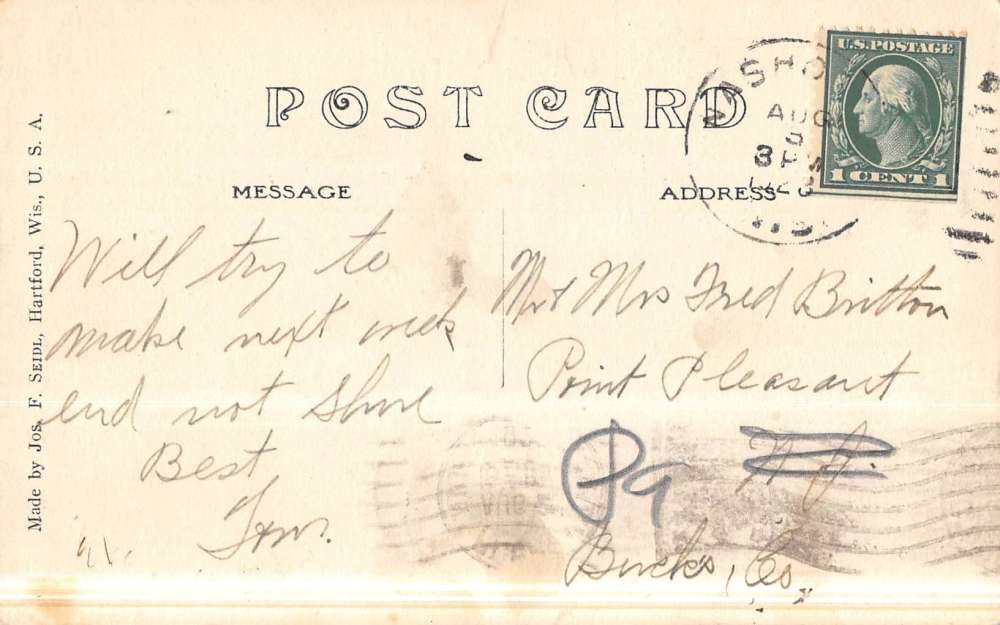 POST CARD
MESSAGE
ADDRESS
U.S. POSTAGE
1 CENT 1
AUG
3 PM
Will try to
make next week
end not shure
Best
Mr & Mrs Fred Britton
Point Pleasant
N. J.
Pa
Bucks, Co.
Made by Jos. F. Seidl, Hartford, Wis., U. S. A.